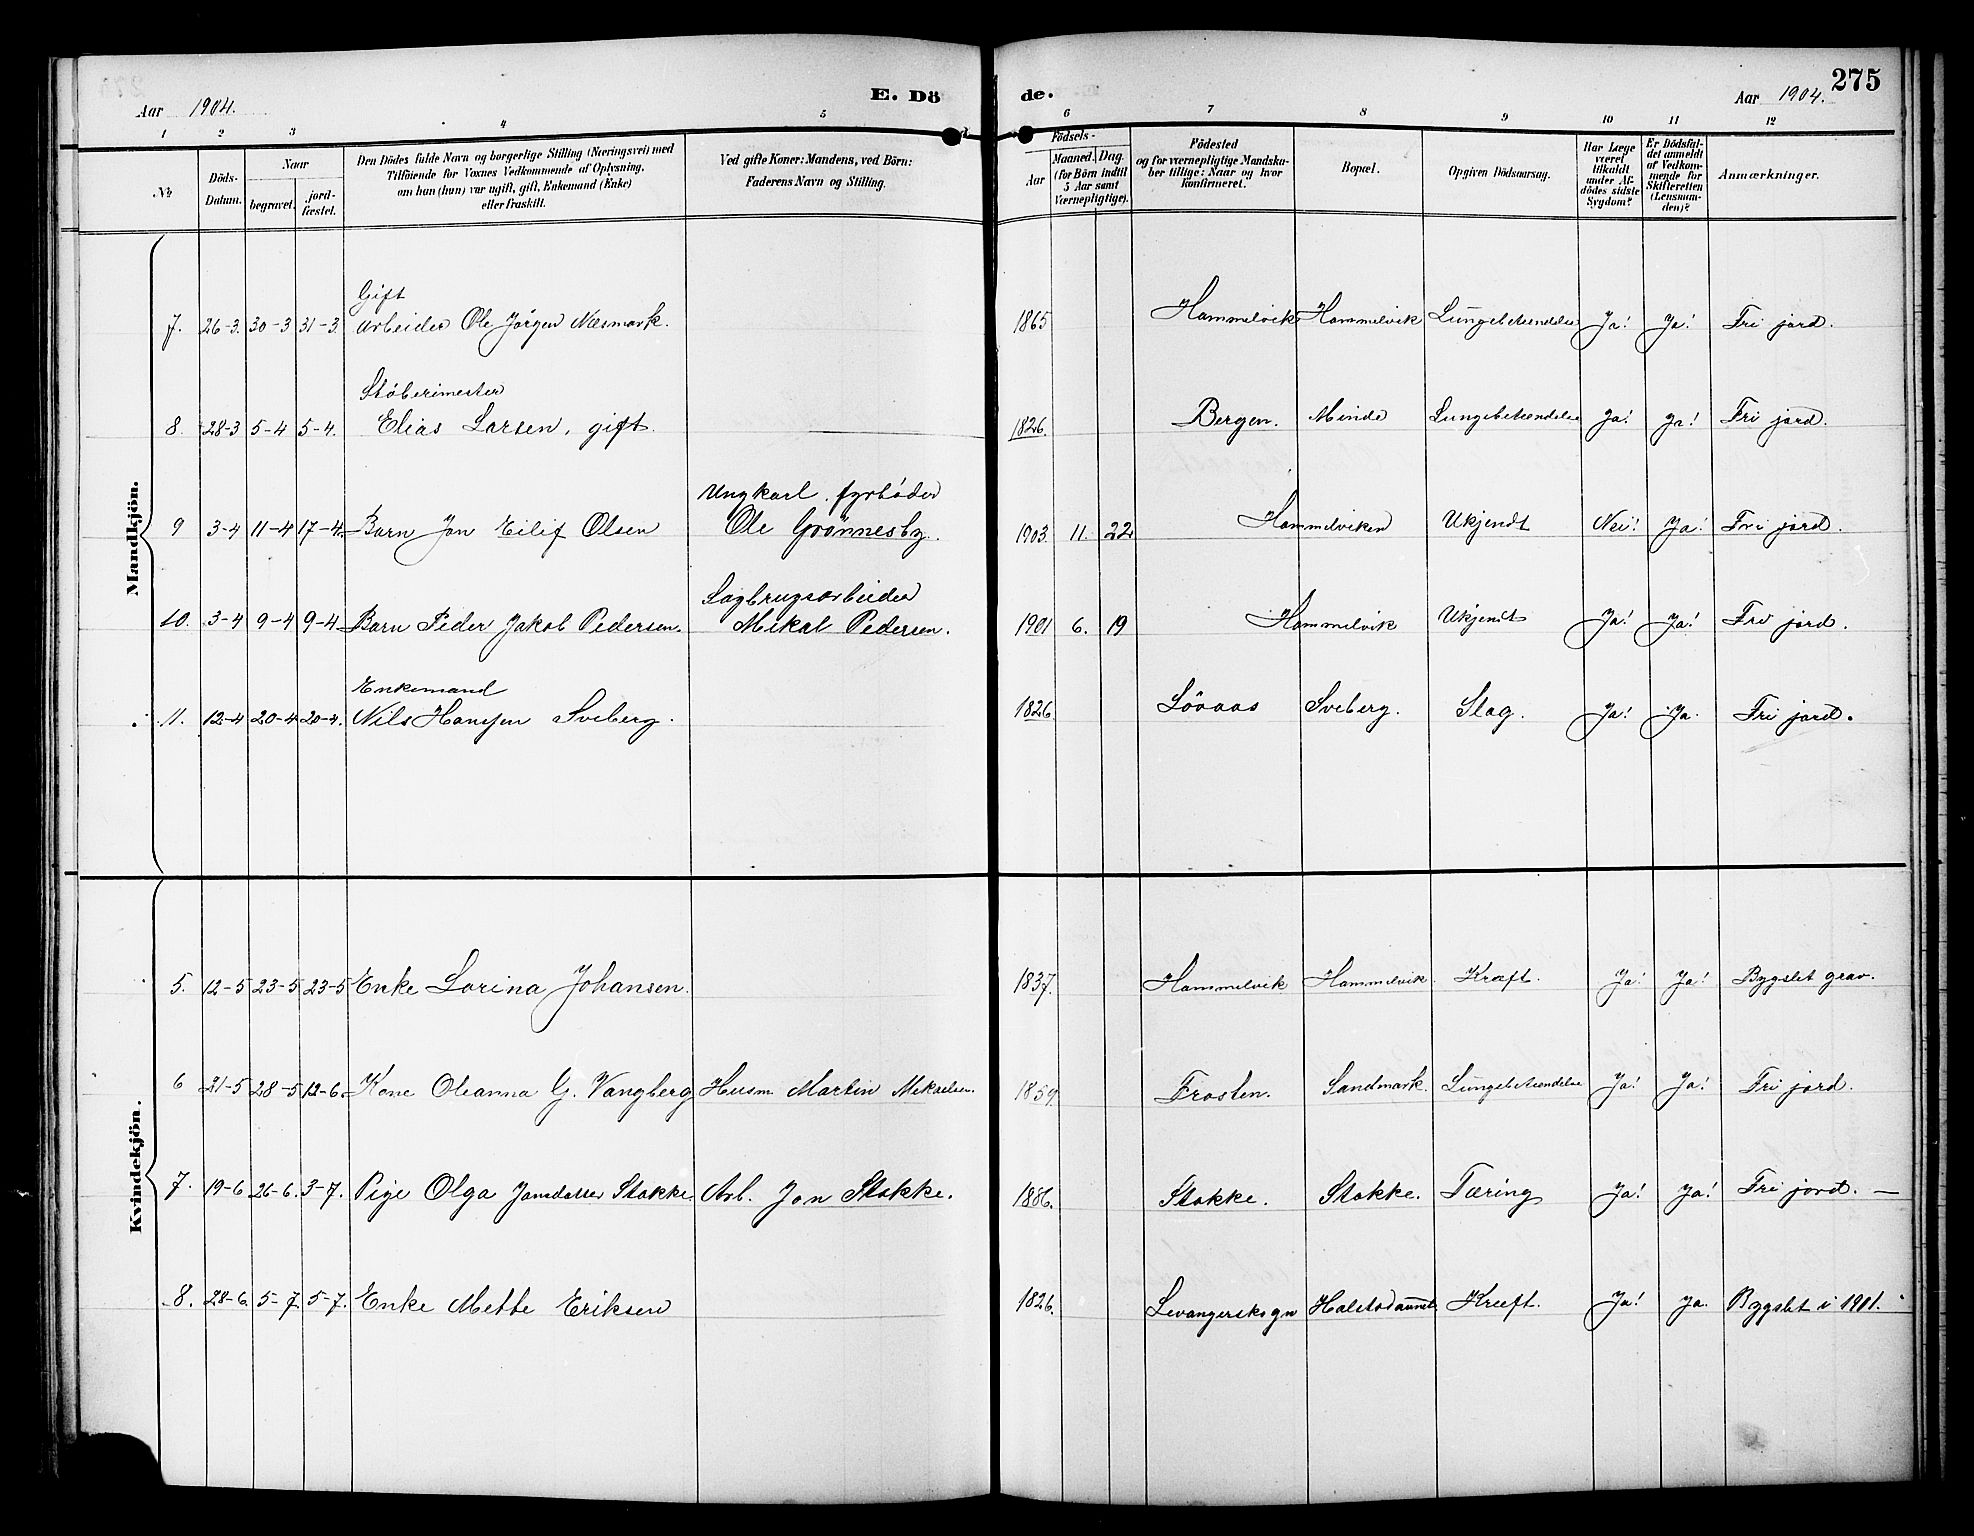 Aar 1904. E. Dö de. Aar 1904. 275
1 2 3 4 5 6 7 8 9 10 11 12
No.
Döds-
Datum.
Naar
begravet.
jord-
fæstet.
Den Dödes fulde Navn og borgerlige Stilling (Næringsvei) med
Tilföiende for Voxnes Vedkommende af Oplysning,
om han (hun) var ugift, gift, Enkemand (Enke)
eller fraskilt.
Ved gifte Koner: Mandens, ved Börn:
Faderens Navn og Stilling.
Födsels-
Aar
Maaned. Dag.
(for Börn indtil
5 Aar samt
Værnepligtige).
Födested
og for værnepligtige Mandska-
ber tillige: Naar og hvor
konfirmeret.
Bopæl.
Opgiven Dödsaarsag.
Har Læge
været
tilkaldt
under Af-
dödes sidste
Sygdom?
Er Dödsfal-
det anmeldt
af Vedkom-
mende for
Skifteretten
(Lensman-
den)?
Anmærkninger.
Mandkjön.
Gift
7. 26-3. 30-3 31-3 Arbeider Ole Jörgen Næsmark. 1865 Hommelvik Hommelvik Lungebetændelse Ja! Ja! Fri jord.
Støberimester
8. 28-3 5-4 5-4. Elias Larsen, gift. 1826. Bergen. Minde Lungebetændelse Ja! Ja! Fri jord.
Ungkarl, fyrbøder
9 3-4 11-4 17-4. Barn Jon Eilif Olsen Ole Grønnesby. 1903. 11. 22 Hommelviken Ukjendt Nei! Ja! Fri jord.
Sagbrugsarbeider
10. 3-4 9-4 9-4 Barn Peder Jakob Pedersen. Mikal Pedersen. 1901 6. 19 Hommelvik Ukjendt Ja! Ja! Fri jord.
Enkemand
11. 12-4 20-4 20-4. Nils Hansen Sveberg. 1826 Löøaas Sveberg. Slag. Ja! Ja. Fri jord.
Kvindekjön.
5. 12-5 23-5 23-5 Enke Lorina Johansen. 1837. Hommelvik Hommelvik. Kræft. Ja! Ja! Bygslet grav.
6 21-5 28-5 12-6. Kone Oleanna G. Vangberg Husm Martin Mikaelsen. 1859. Frosten. Sandmark. Lungebetændelse Ja! Ja! Fri jord.
7. 19-6 26-6. 3-7. Pige Olga Jonsdatter Stokke Arb. Jon Stokke. 1886. Stokke. Stokke. Tæring Ja! Ja! Fri jord. —
8. 28-6. 5-7. 5-7. Enke Mette Eriksen 1826. Levangerskogn Halstadaunet Kræft. Ja! Ja. Bygslet i 1901.